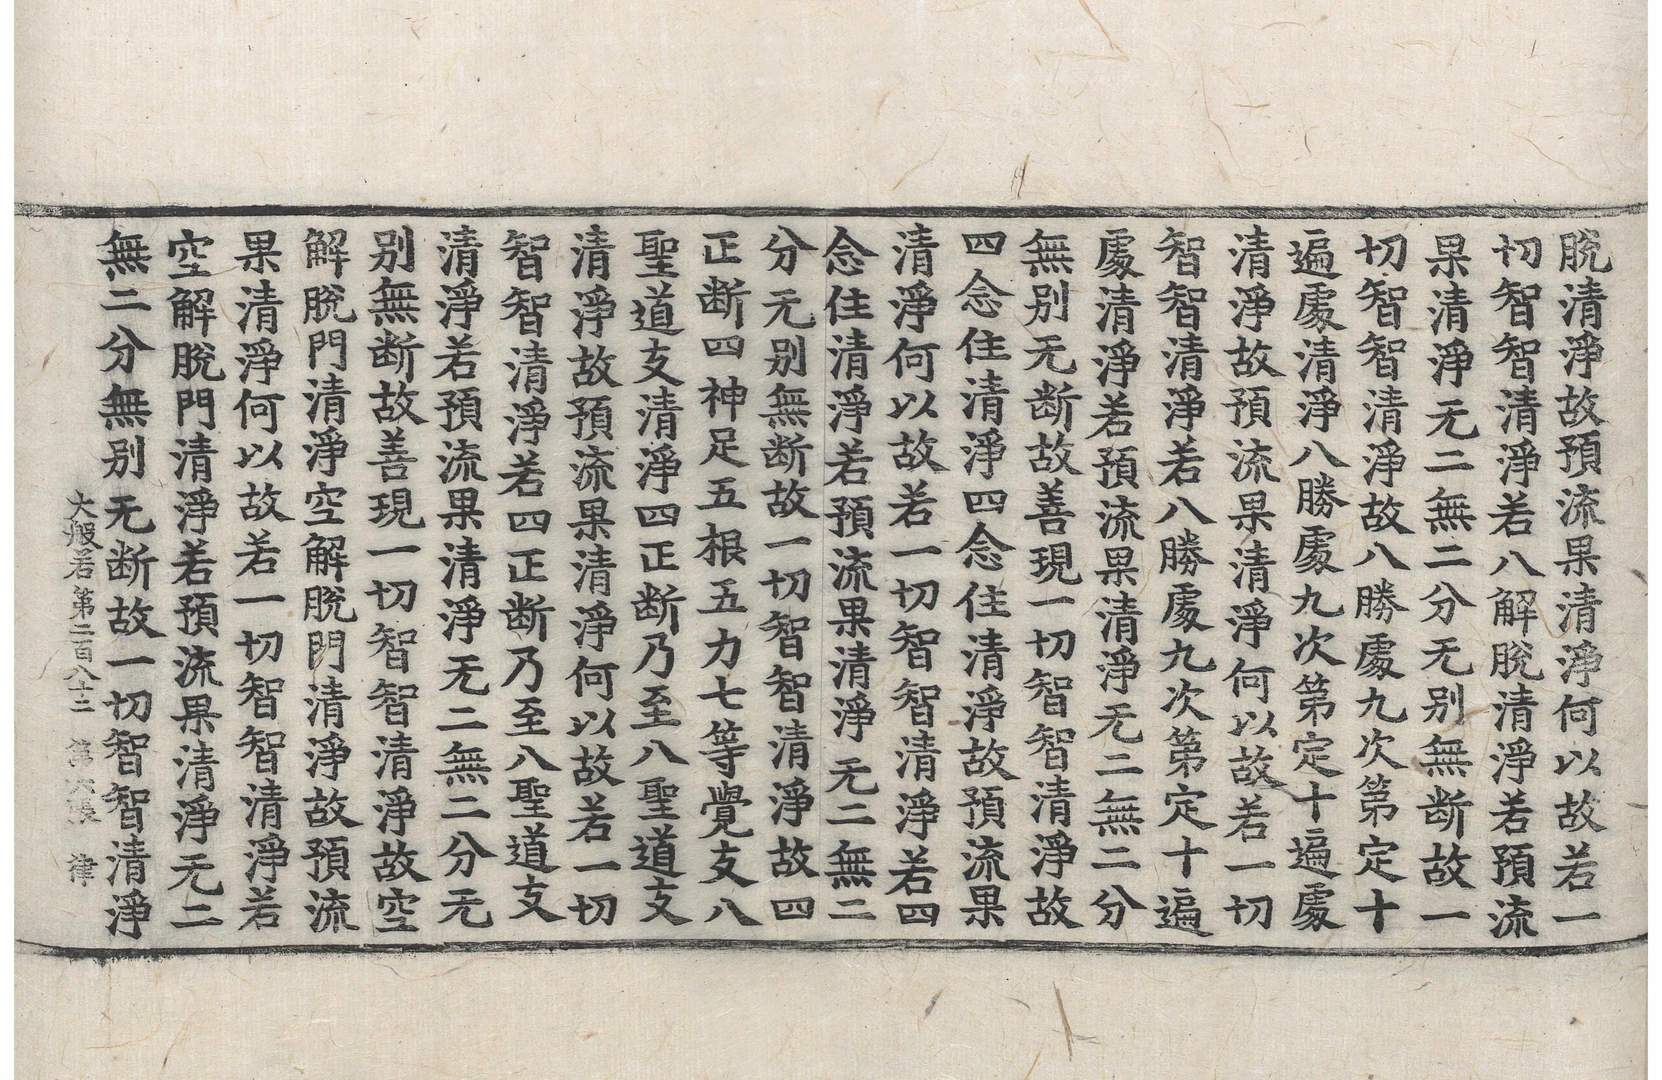 脫清淨故預流果清淨何以故若一
切智智清淨若八解脫清淨若預流
果清淨无二無二分无别無断故一
切智智清淨故八勝處九次第定十
遍處清淨八勝處九次第定十遍處
清淨故預流果清淨何以故若一切
智智清淨若八勝處九次第定十遍
處清淨若預流果清淨无二無二分
無别无断故善現一切智智清淨故
四念住清淨四念住清淨故預流果
清淨何以故若一切智智清淨若四
念住清淨若預流果清淨无二無二
分无别無断故一切智智清淨故四
正断四神足五根五力七等覺支八
聖道支清淨四正断乃至八聖道支
清淨故預流果清淨何以故若一切
智智清淨若四正断乃至八聖道支
清淨若預流果清淨无二無二分无
别無断故善現一切智智清淨故空
解脫門清淨空解脫門清淨故預流
果清淨何以故若一切智智清淨若
空解脫門清淨若預流果清淨无二
無二分無别无断故一切智智清淨
大般若第二百八十二 第六張 律